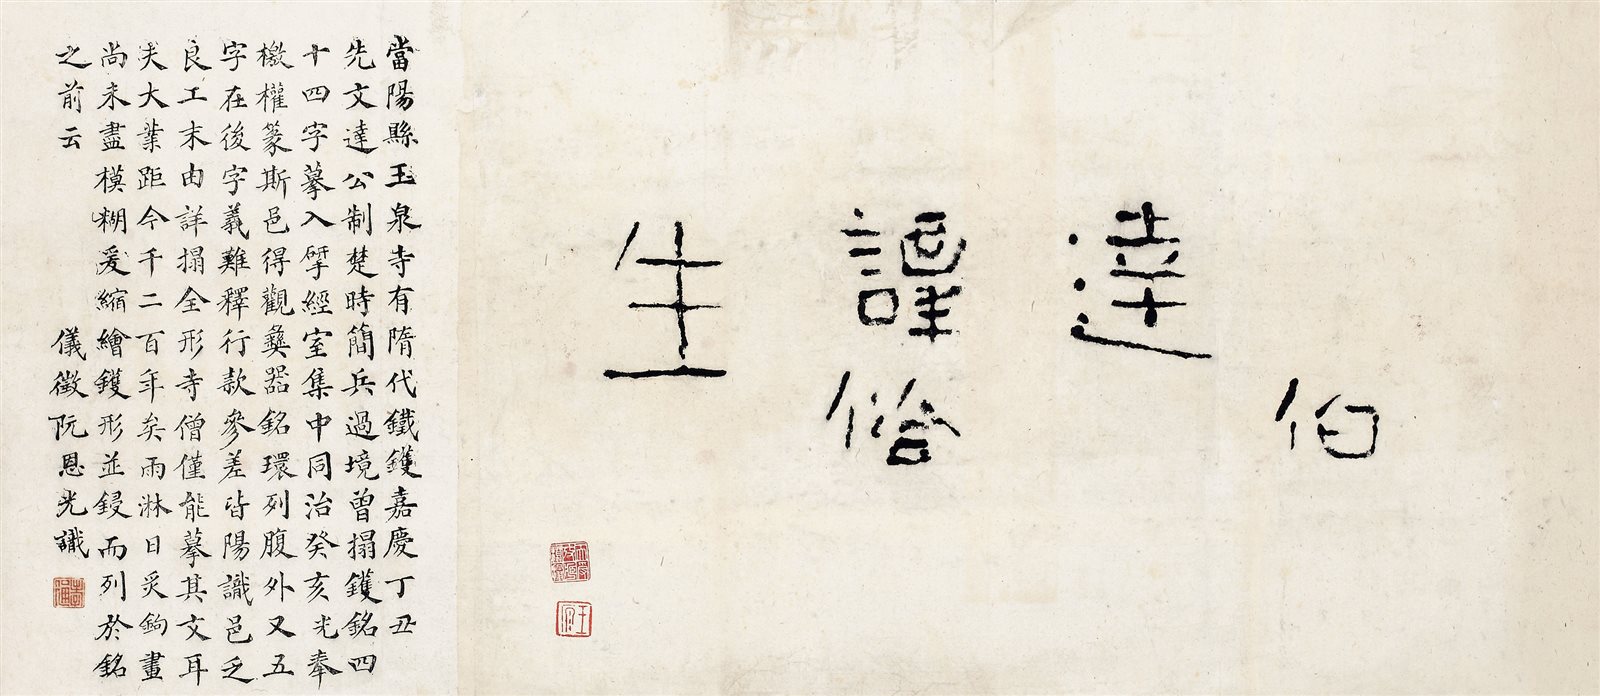 伯
達
謳俗
生
當陽縣玉泉寺有隋代鐵鑊嘉慶丁丑
先文達公制楚時簡兵過境曾搨鑊銘四
十四字摹入揅經室集中同治癸亥光奉
檄權篆斯邑得觀彝器銘環列腹外又五
字在後字義難釋行款參差皆陽識邑乏
良工末由詳搨全形寺僧僅能摹其文耳
夫大業距今千二百年矣雨淋日炙鉤畫
尚未盡模糊爰縮繪鑊形並鋟而列於銘
之前云
儀徵阮恩光識